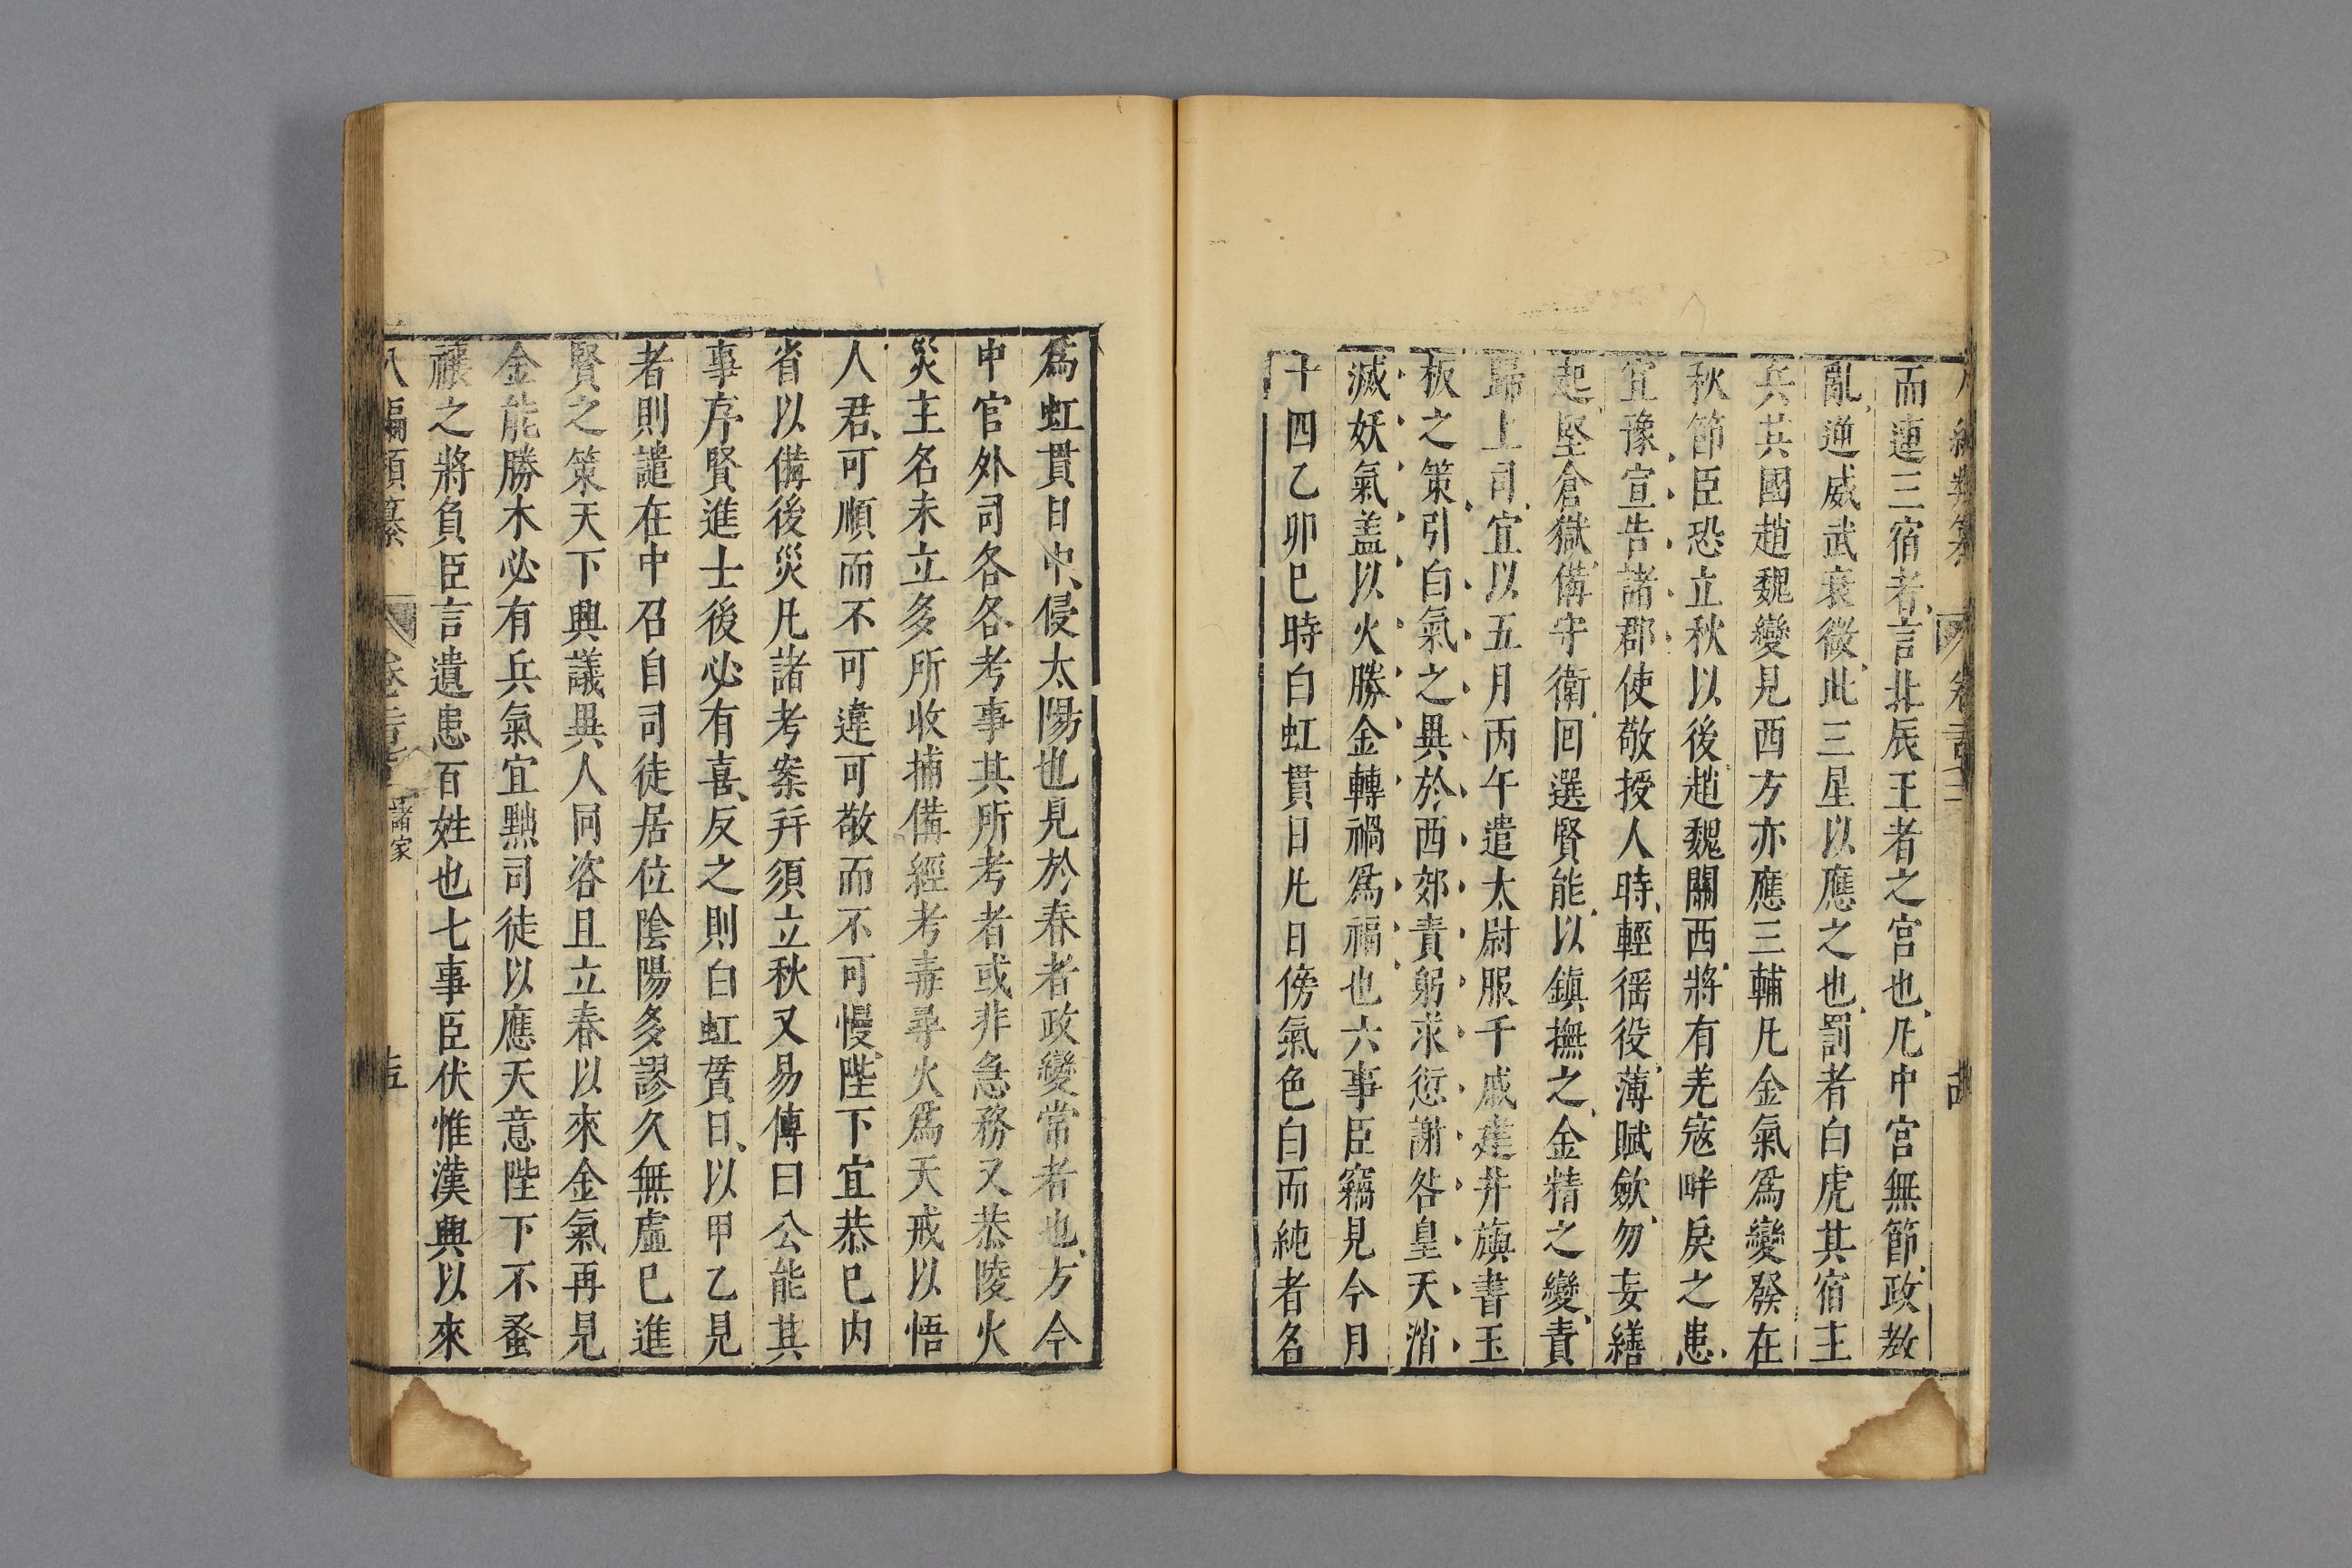 而連三宿者言北辰王者之宫也凡中宫無節政教
亂逆威武衰微此三星以應之也罰者白虎其宿主
兵其國趙魏變見西方亦應三輔凡金氣爲變發在
秋節臣恐立秋以後趙魏關西將有羌寇畔戾之患
宜豫宣告諸郡使敬授人時輕徭役薄賦歛勿妄繕
起堅倉獄備守衛回選賢能以鎮撫之金精之變責
歸上司宜以五月丙午遣太尉服千戚建井旟書玉
板之策引白氣之異於西郊責躬求愆謝咎皇天消
滅妖氣盖以火勝金轉禍爲福也六事臣竊見今月
十四乙卯巳時白虹貫日凡日傍氣色白而純者名
爲虹貫日中侵太陽也見於春者政變常者也方今
中官外司各各考事其所考者或非急務又恭陵火
災主名未立多所收捕備經考毒尋火爲天戒以悟
人君可順而不可違可敬而不可慢陛下宜恭已内
省以備後災凡諸考案并須立秋又易傳曰公能其
事序賢進士後必有喜反之則白虹貫日以甲乙見
者則譴在中召自司徒居位陰陽多謬久無虛巳進
賢之策天下興議異人同咨且立春以來金氣再見
金能勝木必有兵氣宜黜司徒以應天意陛下不蚤
禳之將負臣言遺患百姓也七事臣伏惟漢興以來
八編類纂 卷 諸家